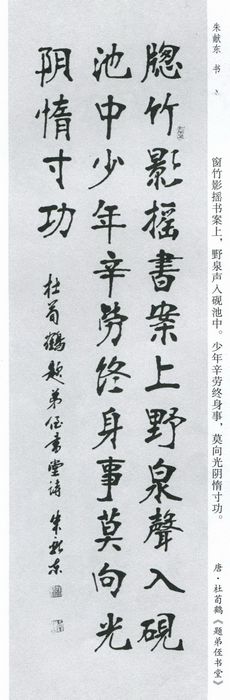 朱献东 书
窗竹影摇书案上，野泉声入砚池中。少年辛劳终身事，莫向光阴惰寸功。
唐·杜荀鹤《题弟侄书堂》
牕竹影摇書案上野泉聲入硯
池中少年辛勞终身事莫向光
阴惰寸功
杜荀鶴题弟侄書堂诗 朱献东